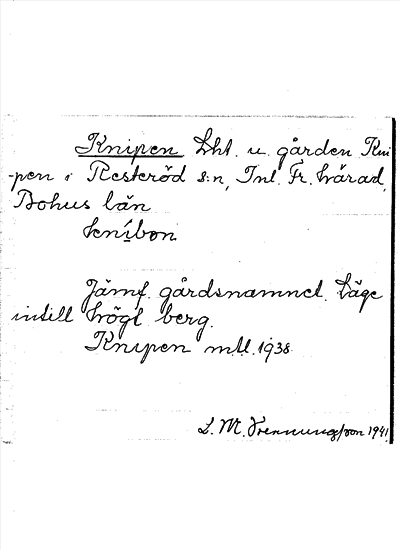 Knipen Lht. u. gården Kni
-pen i Resteröd s:n, Inl. Fr. härad,
Bohus län

Jämf. gårdsnamnet. Läge
intill högt berg.
Knipen mtl. 1938
L. M. 1941